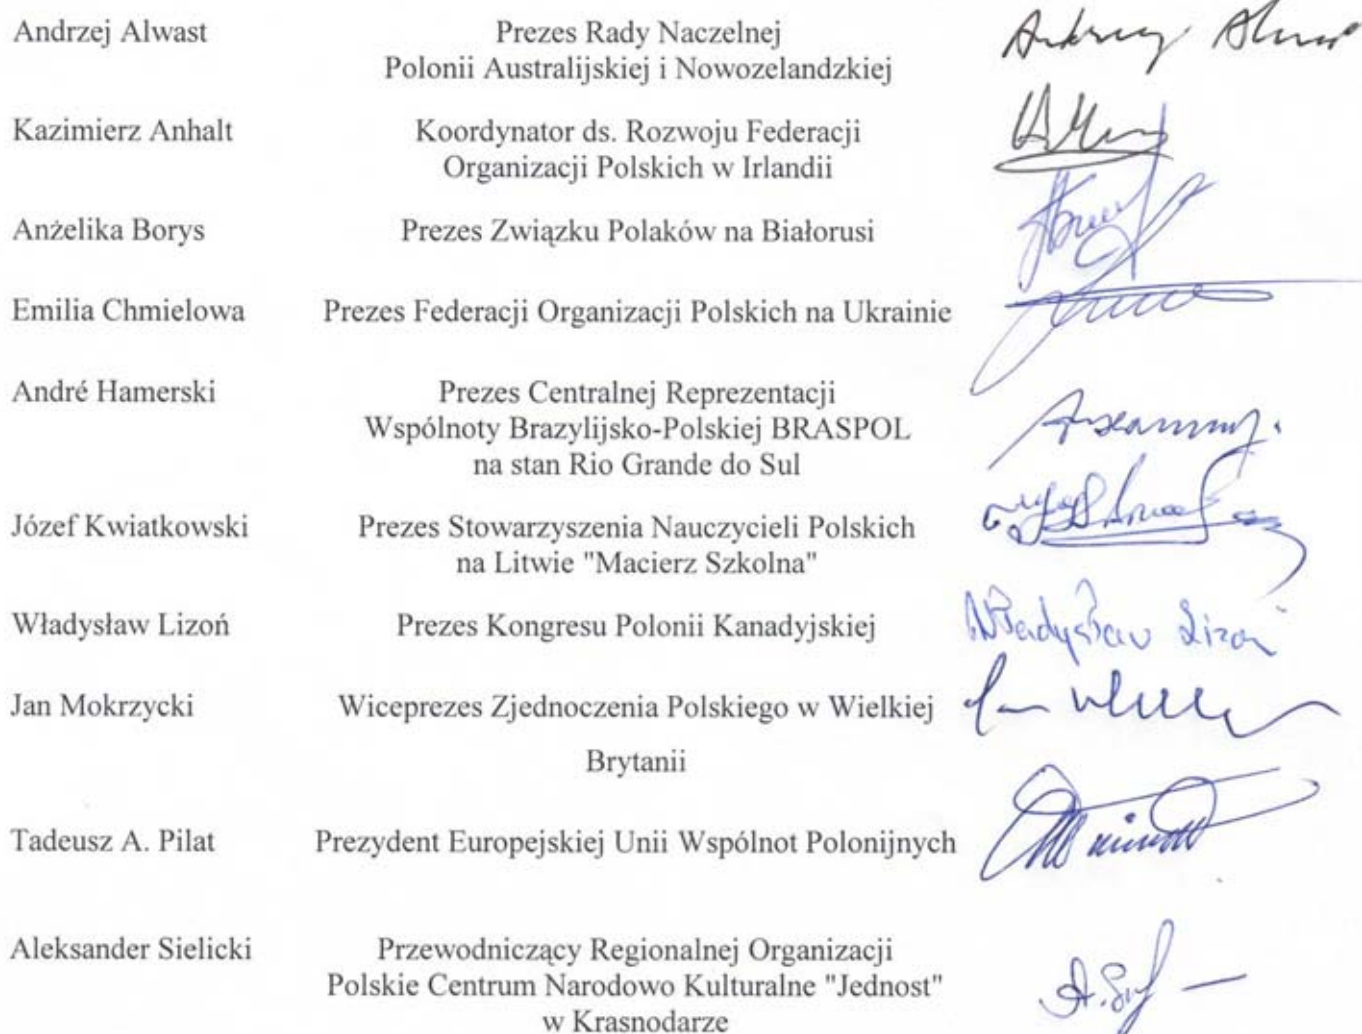 Andrzej Alwast Prezes Rady Naczelnej Andrzej Alwast
Polonii Australijskiej i Nowozelandzkiej
Kazimierz Anhalt Koordynator ds. Rozwoju Federacji
Organizacji Polskich w Irlandii
Anżelika Borys Prezes Związku Polaków na Białorusi
Emilia Chmielowa Prezes Federacji Organizacji Polskich na Ukrainie
André Hamerski Prezes Centralnej Reprezentacji
Wspólnoty Brazylijsko-Polskiej BRASPOL
na stan Rio Grande do Sul
Józef Kwiatkowski Prezes Stowarzyszenia Nauczycieli Polskich
na Litwie "Macierz Szkolna"
Władysław Lizoń Prezes Kongresu Polonii Kanadyjskiej Władysław Lizoń
Jan Mokrzycki Wiceprezes Zjednoczenia Polskiego w Wielkiej
Brytanii
Tadeusz A. Pilat Prezydent Europejskiej Unii Wspólnot Polonijnych
Aleksander Sielicki Przewodniczący Regionalnej Organizacji
Polskie Centrum Narodowo Kulturalne "Jednost"
w Krasnodarze